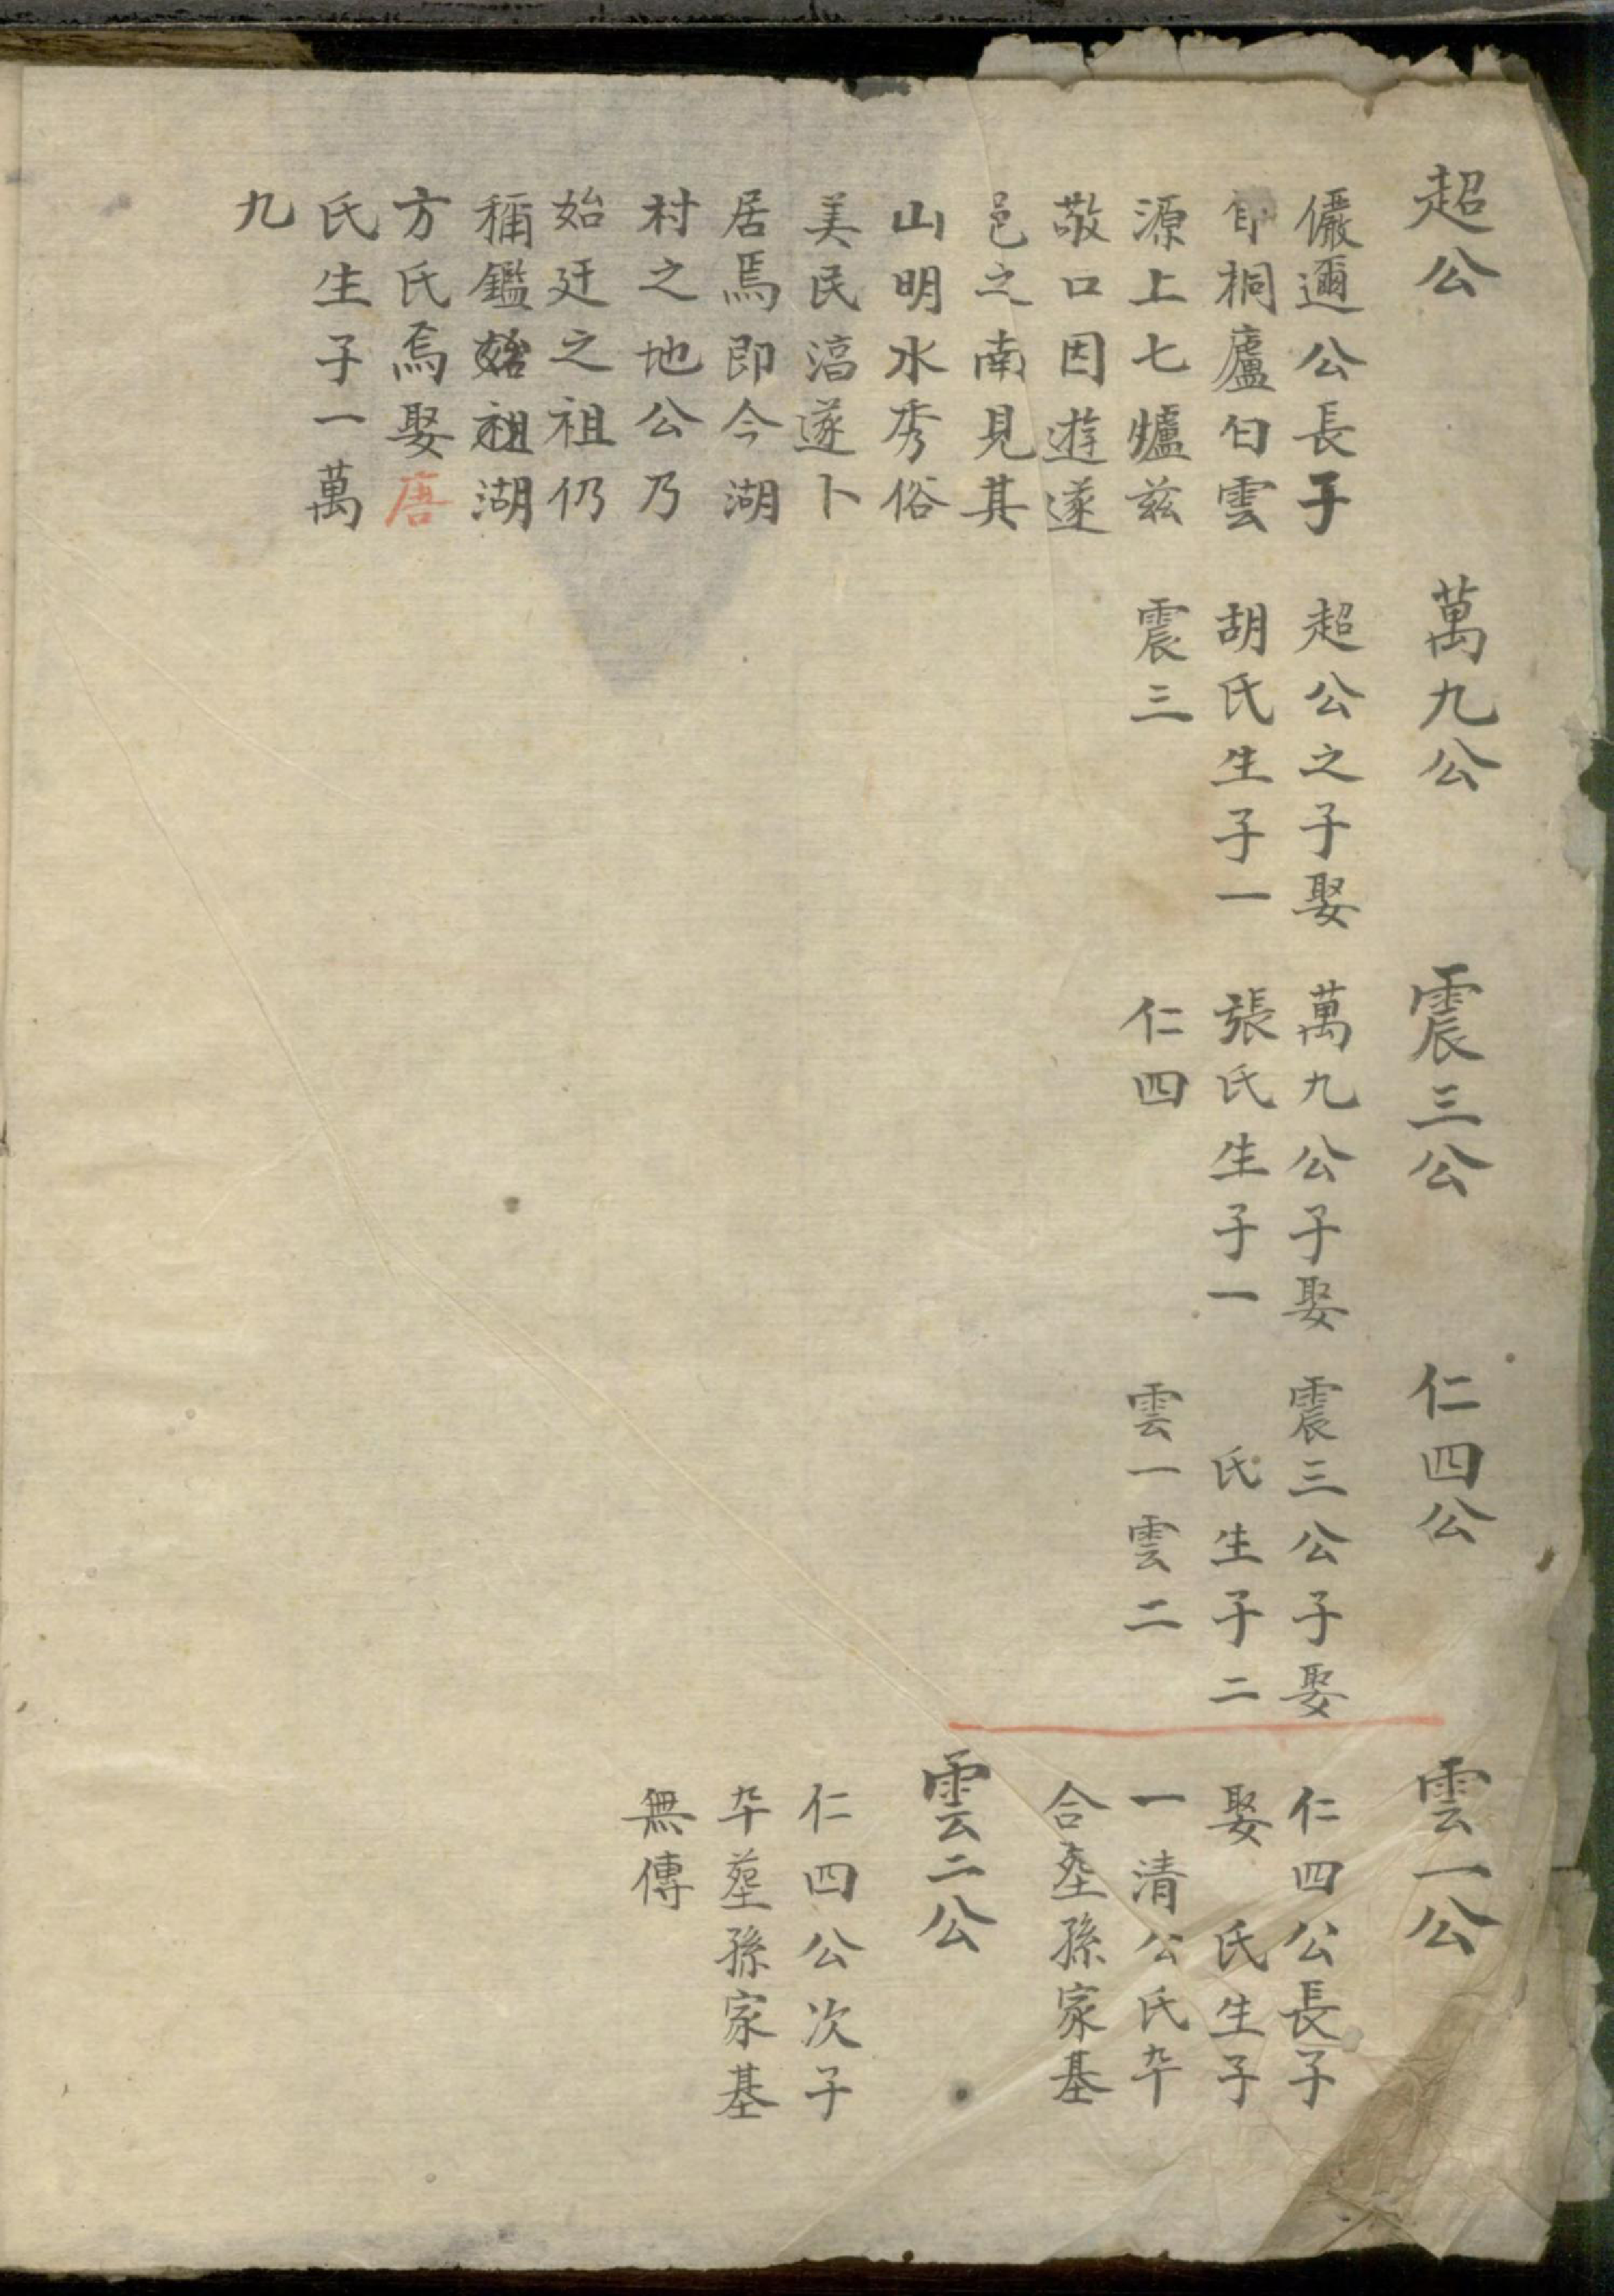 超公
儼邇公長子
自桐廬白雲
源上七爐兹
敬口因遊遂
邑之南見其
山明水秀俗
美民湻遂卜
居焉即今湖
村之地公乃
始廷之祖仍
稱鑑始祖湖
方氏焉娶唐
氏生子一萬
九
萬九公
超公之子娶
胡氏生子一
震三
震三公
萬九公子娶
張氏生子一
仁四
仁四公
震三公子娶
氏生子二
雲一雲二
雲一公
仁四公長子
娶 氏生子
一清公氏卒
合塟孫家基
雲二公
仁四公次子
卒塟孫家基
無傳